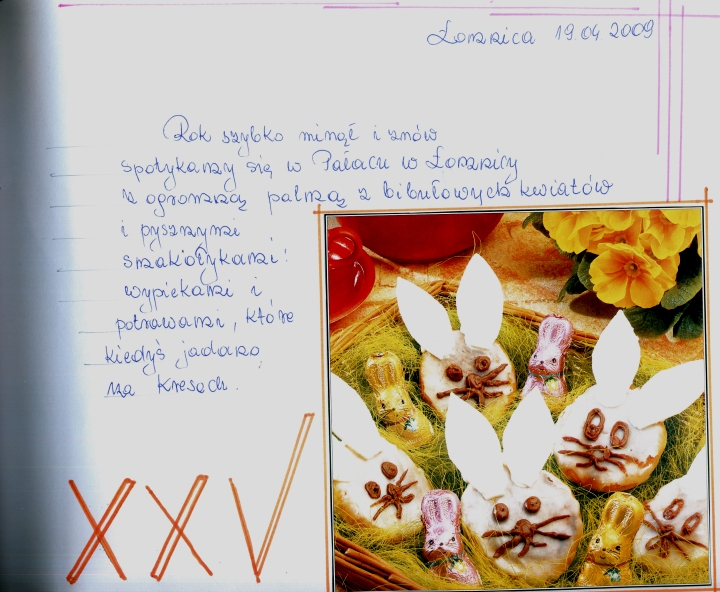 Łomnica 19.04.2009
Rok szybko minął i znów
spotykamy się w Pałacu w Łomnicy
z ogromną palmą z bibułowych kwiatów
i pysznymi
smakołykami!
wypiekami i
potrawami, które
kiedyś jadano
na Kresach.
XXV